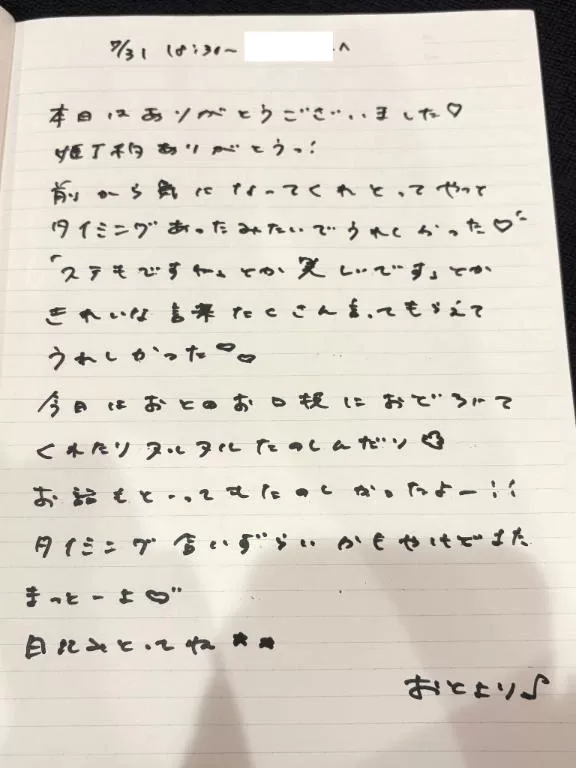 7/31 18:30〜 へ
本日はありがとうございました♡
姫予約ありがとうっ!
前から気になってくれとってやっと
タイミングあったみたいでうれしかった♡
「ステキですね」とか「美しいです」とか
きれいな言葉たくさん言ってもらえて
うれしかった♡♡
今日はおとのお口技におどろいて
くれたりヌルヌルたのしんだり
お話もとーってもたのしかったよー!!
タイミング合いずらいかもやけどまた
まっとーよ♡
目にみとってね★★
おとより♪